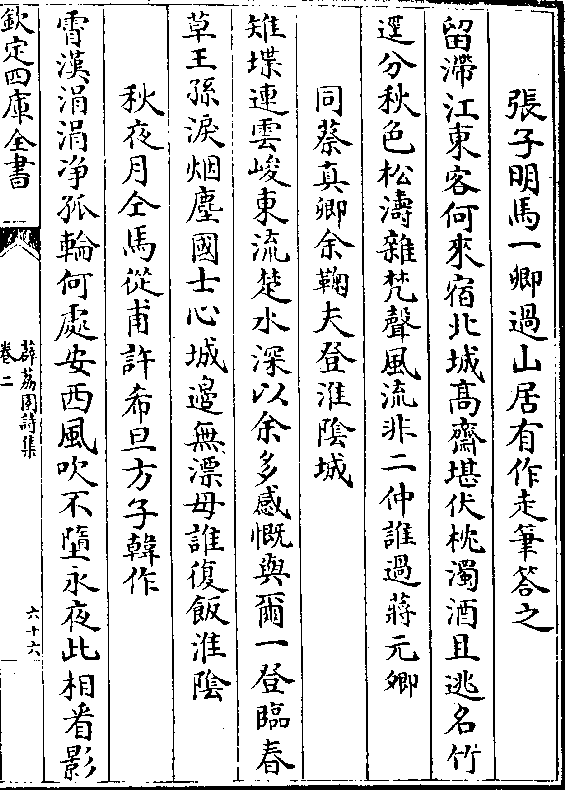 張子明馬一卿過山居有作走筆答之
留滯江東客何來宿北城高齋堪伏枕濁酒且逃名竹
逕分秋色松濤雜梵聲風流非二仲誰過蔣元卿
同蔡真卿余鞠夫登淮陰城
雉堞連雲峻東流楚水深以余多感慨與爾一登臨春
草王孫淚烟塵國士心城邉無漂母誰復飯淮陰
秋夜月仝馬從甫許希旦方子韓作
霄漢涓涓净孤輪何處安西風吹不墮永夜此相看影
欽定四庫全書
薜荔園詩集
卷二
六十六